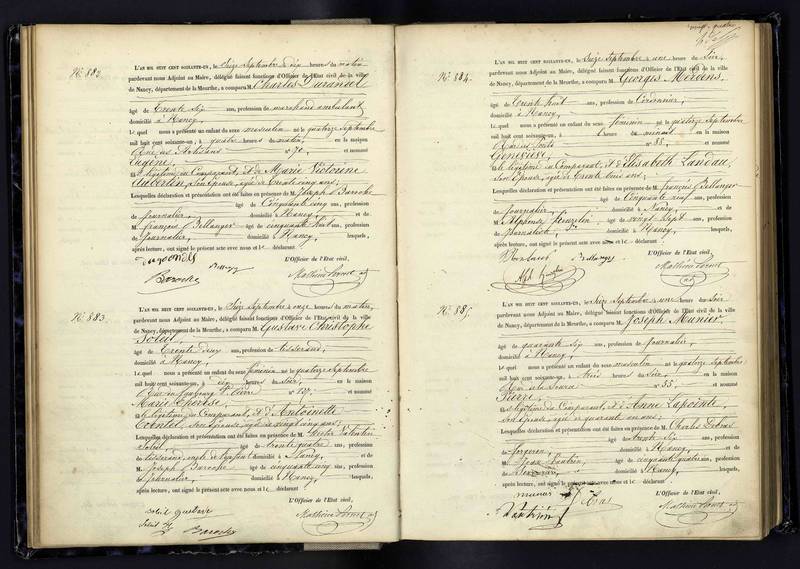 N.° 882.
L'AN MIL HUIT CENT SOIXANTE-UN, le Seize Septembre à dix heures du matin
pardevant nous Adjoint au Maire, délégué faisant fonctions d'Officier de l'Etat civil de la ville
de Nancy, département de la Meurthe, a comparu M. Charles Durandel
âgé de Trente Six ans, profession de marchand ambulant
domicilié à Nancy,
Lequel nous a présenté un enfant du sexe masculin né le quatorze Septembre
mil huit cent soixante-un, à quatre heures du matin, en la maison
Rue des Artisans n.° 70. et nommé
Eugène,
fils légitime du Comparant, et de Marie Victorine
Aubertin, son épouse, agée de trente cinq ans;
Lesquelles déclaration et présentation ont été faites en présence de M. Joseph Baroche
âgé de Cinquante cinq ans, profession
de Journalier, domicilié à Nancy, et de
M. françois Bellanger âgé de cinquante huit ans, profession
de Journalier, domicilié à Nancy, lesquels,
après lecture, ont signé le présent acte avec nous et le déclarant
L'Officier de l'Etat civil,
Baroche
N.° 883.
L'AN MIL HUIT CENT SOIXANTE-UN, le Seize Septembre à onze heures du matin,
pardevant nous Adjoint au Maire, délégué faisant fonctions d'Officier de l'Etat civil de la ville
de Nancy, département de la Meurthe, a comparu M. Gustave Christophe
Soleil,
âgé de Trente deux ans, profession de tisserand,
domicilié à Nancy,
Lequel nous a présenté un enfant du sexe féminin né le quatorze Septembre
mil huit cent soixante-un, à dix heures du soir, en la maison
Rue du faubourg St. Pierre n.° 137. et nommé
Marie Thérèse,
fille légitime du Comparant, et d'Antoinette
son épouse, agée de vingt cinq ans;
Lesquelles déclaration et présentation ont été faites en présence de M. Valentin
Soleil, âgé de trente quatre ans, profession
de tisserand, domicilié à Nancy, et de
M. Joseph Baroche âgé de cinquante cinq ans, profession
de Journalier, domicilié à Nancy, lesquels,
après lecture, ont signé le présent acte avec nous et le déclarant
L'Officier de l'Etat civil,
soleil gustave
Baroche
N.° 884.
L'AN MIL HUIT CENT SOIXANTE-UN, le Seize Septembre à une heure du Soir,
pardevant nous Adjoint au Maire, délégué faisant fonctions d'Officier de l'Etat civil de la ville
de Nancy, département de la Meurthe, a comparu M. Georges
âgé de Trente huit ans, profession de Cordonnier,
domicilié à Nancy,
Lequel nous a présenté un enfant du sexe féminin né le quatorze Septembre
mil huit cent soixante-un, à heures du minuit, en la maison
Rue des Ponts n.° 88. et nommé
Geneviève
fille légitime du Comparant, et d'Elisabeth Landau,
son épouse, agée de trente trois ans;
Lesquelles déclaration et présentation ont été faites en présence de M. françois Bellanger
âgé de Cinquante neuf ans, profession
de Journalier, domicilié à Nancy, et de
M. Alphonse âgé de vingt Sept ans, profession
de Journaliste, domicilié à Nancy, lesquels,
après lecture, ont signé le présent acte avec nous et le déclarant
L'Officier de l'Etat civil,
N.° 885.
L'AN MIL HUIT CENT SOIXANTE-UN, le Seize Septembre à une heure du Soir
pardevant nous Adjoint au Maire, délégué faisant fonctions d'Officier de l'Etat civil de la ville
de Nancy, département de la Meurthe, a comparu M. Joseph Munier
âgé de quarante Six ans, profession de Journalier,
domicilié à Nancy,
Lequel nous a présenté un enfant du sexe masculin né le quatorze Septembre
mil huit cent soixante-un, à trois heures du Soir, en la maison
n.° 35. et nommé
Pierre,
fils légitime du Comparant, et d'Anne Lapointe,
son épouse, agée de quarante un ans;
Lesquelles déclaration et présentation ont été faites en présence de M. Charles
âgé de trente Six ans, profession
de forgeron, domicilié à Nancy, et de
M. Jean âgé de cinquante quatre ans, profession
de domicilié à Nancy, lesquels,
après lecture, ont signé le présent acte avec nous et le déclarant
L'Officier de l'Etat civil,
munier